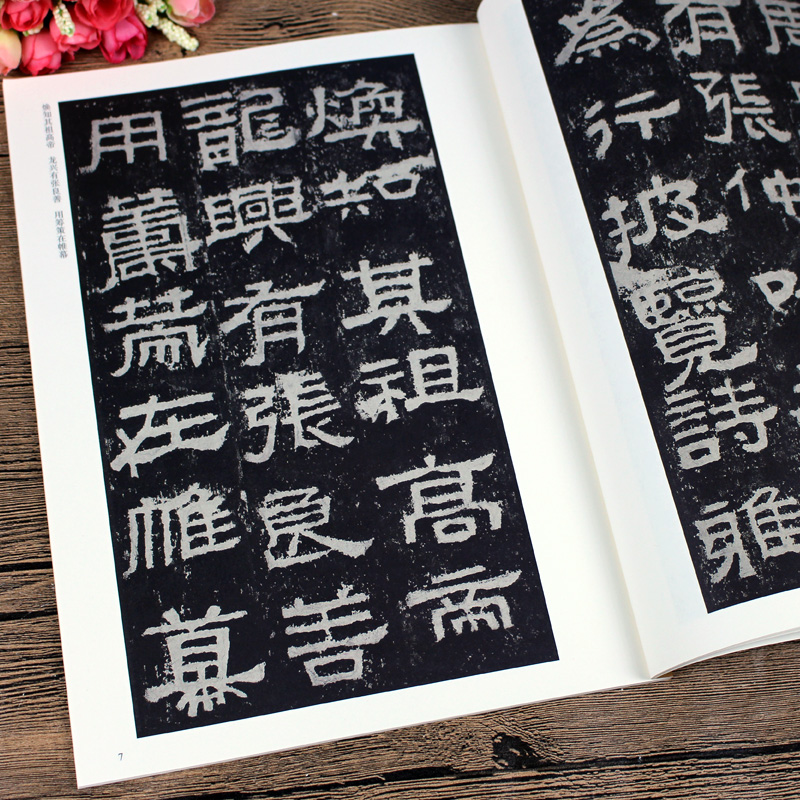 周
有張仲以
為行披覽詩雅
煥知其祖高帝
龍興有張良善
用籌策在帷幕
焕知其祖高帝 龙兴有张良善 用筹策在帷幕
7